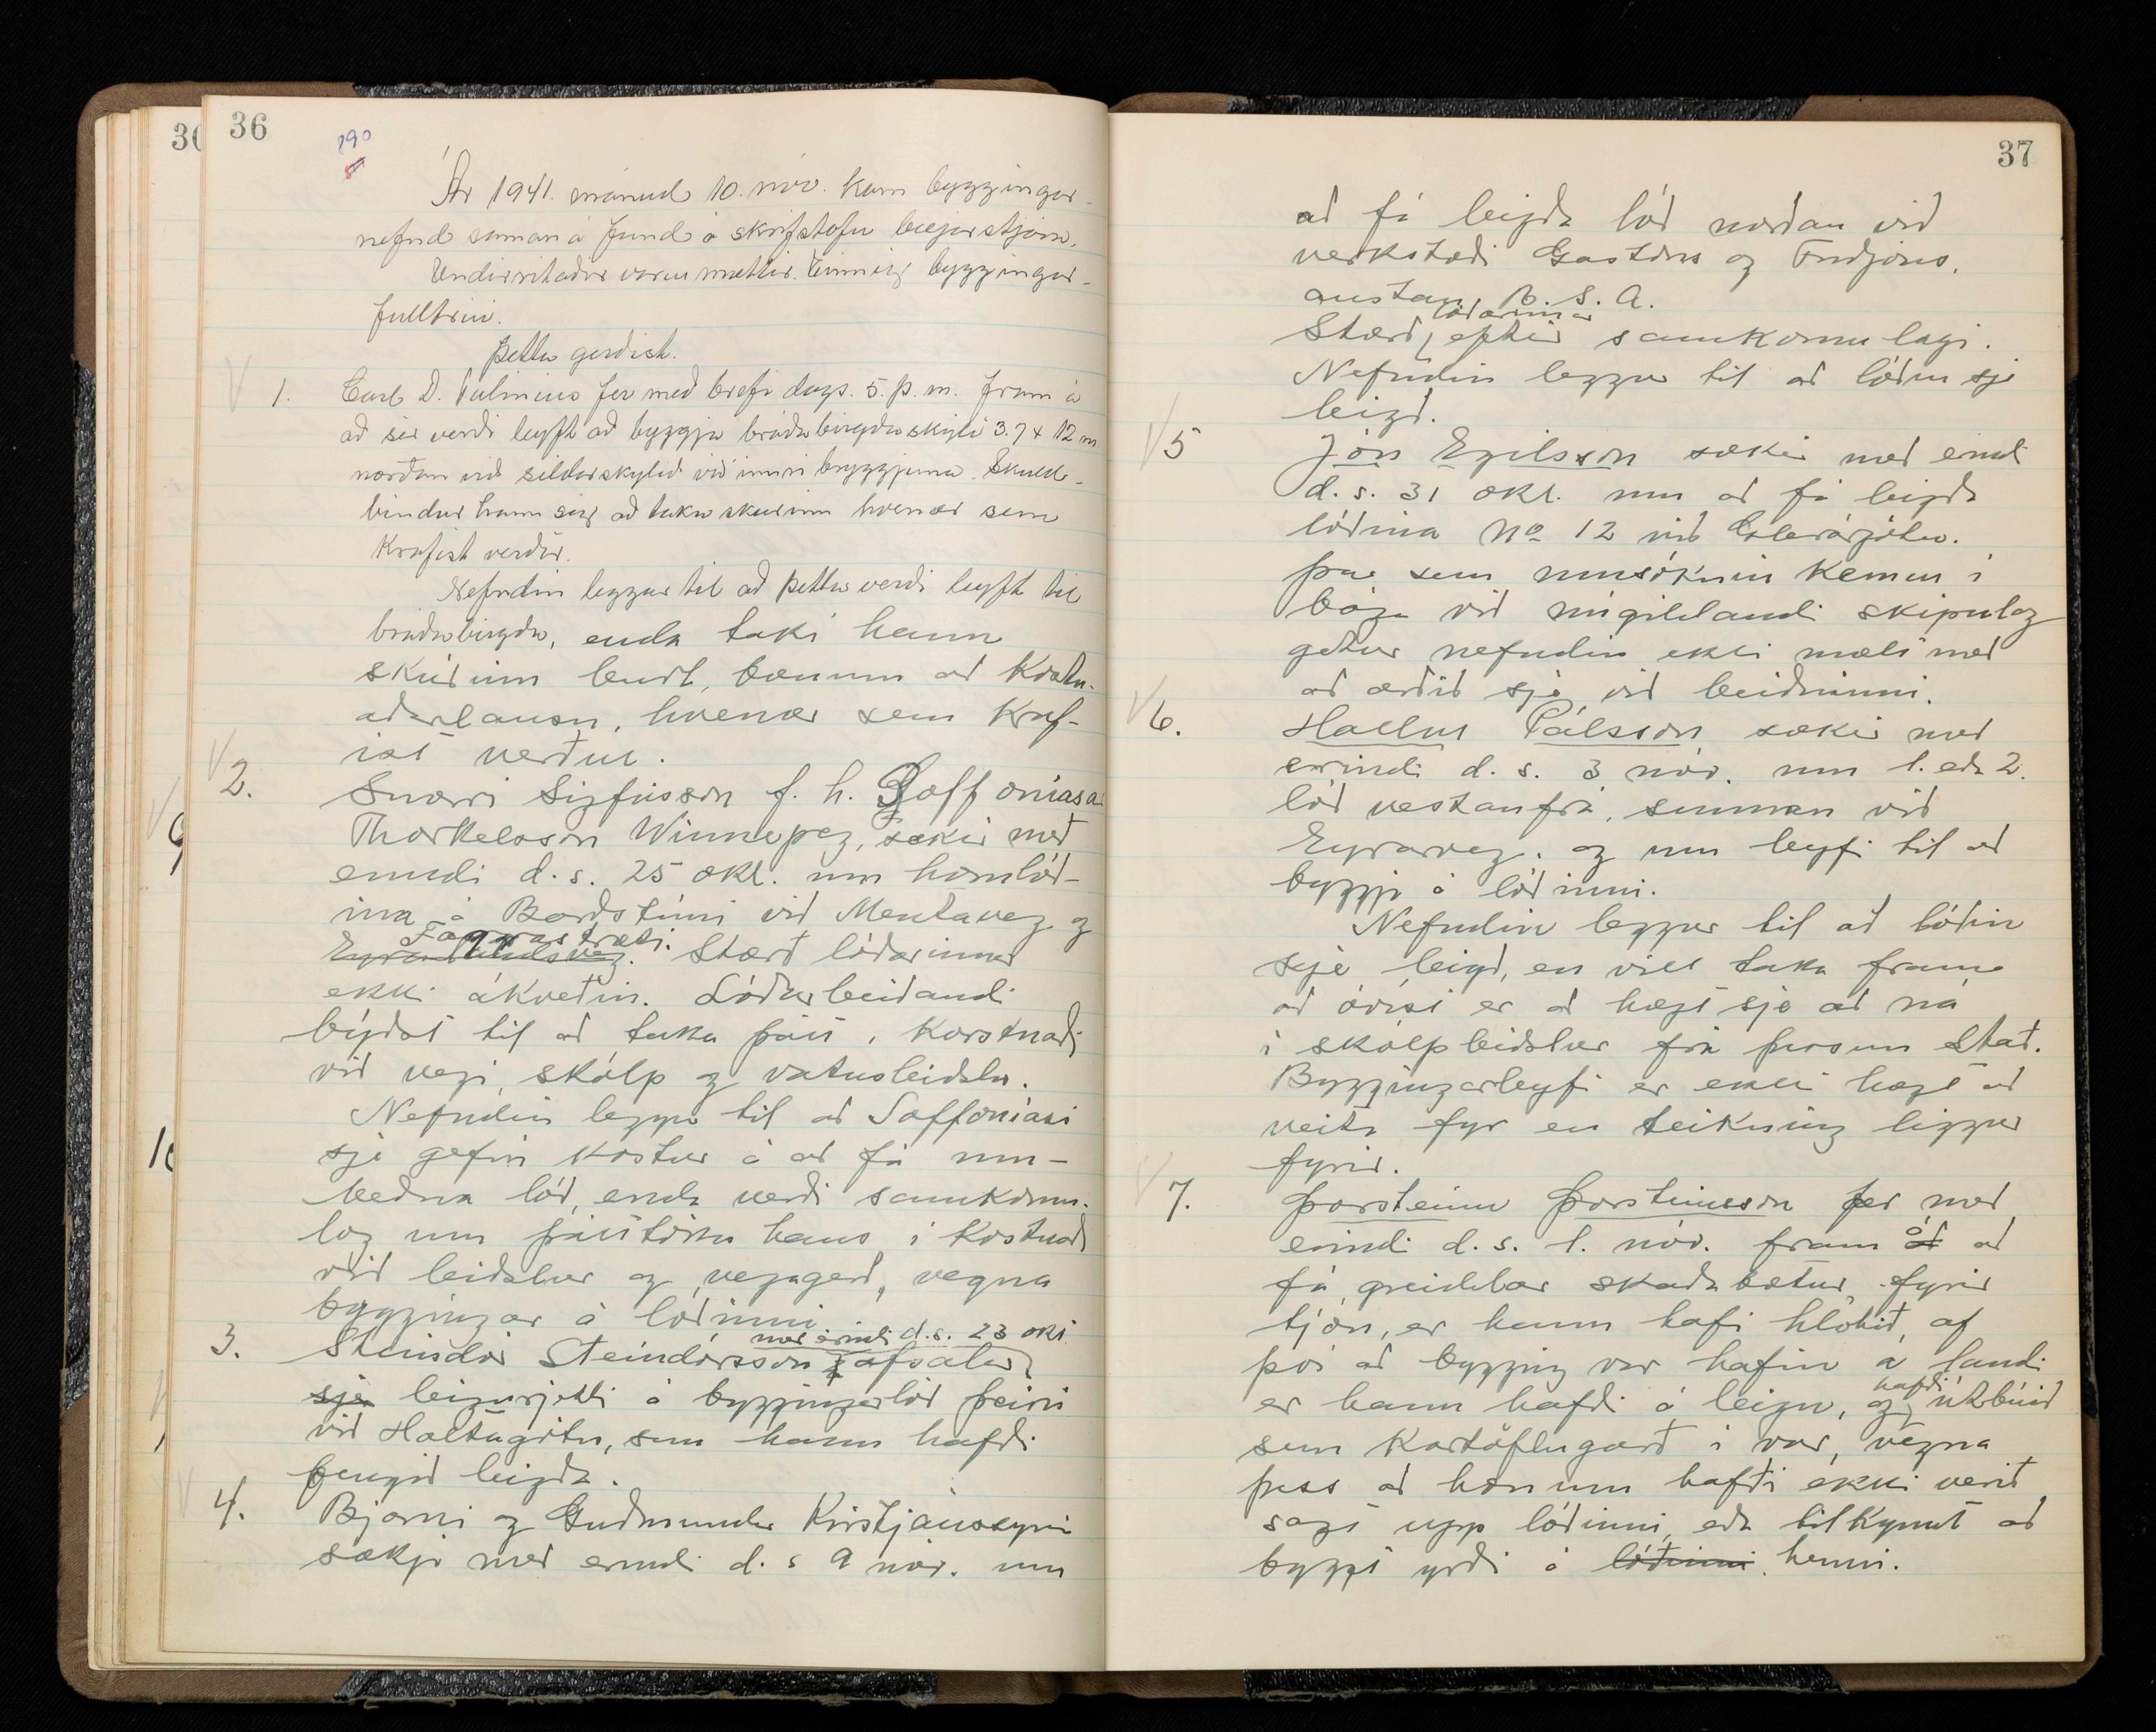 36
890
Ár 1941. mánud 10. nóv. kom byggingar-
nefnd saman á fund á skrifstofu bæjarstjóra.
Undirritaðir voru mættir. Einnig byggingar-
fulltrúi.
Þetta gerðist.
1. Carl D. Tulinius fer með bréfi dags. 5. þ. m. fram á
að sér verði leyft að byggja bráðabirgðaskýli 3.7 x 12 m
norðan við síldarskýlið við innri bryggjuna. Skuld-
bindur hann sig að taka skúrinn hvenær sem
krafist verður.
Nefndin leggur til að þetta verði leyft til
bráðabirgða, enda taki hann
skúrinn burt, bænum að kostn-
aðarlausu, hvenær sem kraf-
ist verður.
2. Snorri Sigfússon f. h. Soffoníasar
Thorkelsson Winnepeg, sækir með
erindi d. s. 25 okt. um hornlóð-
ina á Barðstúni við Mentaveg og
Fagrastræti.
Stærð lóðarinnar
ekki ákveðin. Lóðarbeiðandi
býðst til að taka þátt í korstnaði
við vegi, skólp og vatnsleiðslu.
Nefndin leggur til að Soffoníasi
sje gefin kostur á að fá um-
beðna lóð, enda verði samkomu-
lag um þátttöku hans í kostnað
við leiðslur og vegagerð, vegna
byggingar á lóðinni.
með erindi d. s. 23 okt.
3. Steindór Steindórsson afsalar
sjer leigurjetti á byggingarlóð þeirri
við Holtagötu, sem hann hafði
fengið leigða.
4. Bjarni og Guðmundur Kristjánssynir
sækja með erindi d. s 9 nóv. um
37
að fá leigða lóð norðan við
verkstæði Gastons og Friðjóns,
austan, B. S. A.
lóðarinnar
Stærð, eptir samkomulagi.
Nefndin leggur til að lóðin sje
leigð.
5 Jón Egilsson sækir með erindi
d. s. 31 okt. um að fá leigða
lóðina No 12 við Glerárgötu.
Þar sem umsóknin kemur í
bága við núgildandi skipulag
getur nefndin ekki mælt með
að orðið sje við beiðninni.
6. Hallur Pálsson sækir með
erindi d. s. 3 nóv. um 1. eða 2.
lóð vestanfrá, sunnan við
Eyrarveg. og um leyfi til að
byggja á lóðinni.
Nefndin leggur til að lóðin
sje leigð, en vill taka fram
að óvíst er að hægt sje að ná
í skólpleiðslur frá þessum stað.
Byggingarleyfi er ekki hægt að
veita fyr en teikning liggur
fyrir.
7. Þorsteinn Þorsteinsson fer með
erindi d. s. 1. nóv. fram á að
fá greiddar skaðabætur fyrir
tjón, er hann hafi hlotið, af
því að bygging var hafin á landi
er hann hafði á leigu, og hafði útbúið
sem kartöflugarð í vor, vegna
þess að honum hafði ekki verið
sagt upp lóðinni, eða tilkynt að
byggt yrði á lóðinni henni.